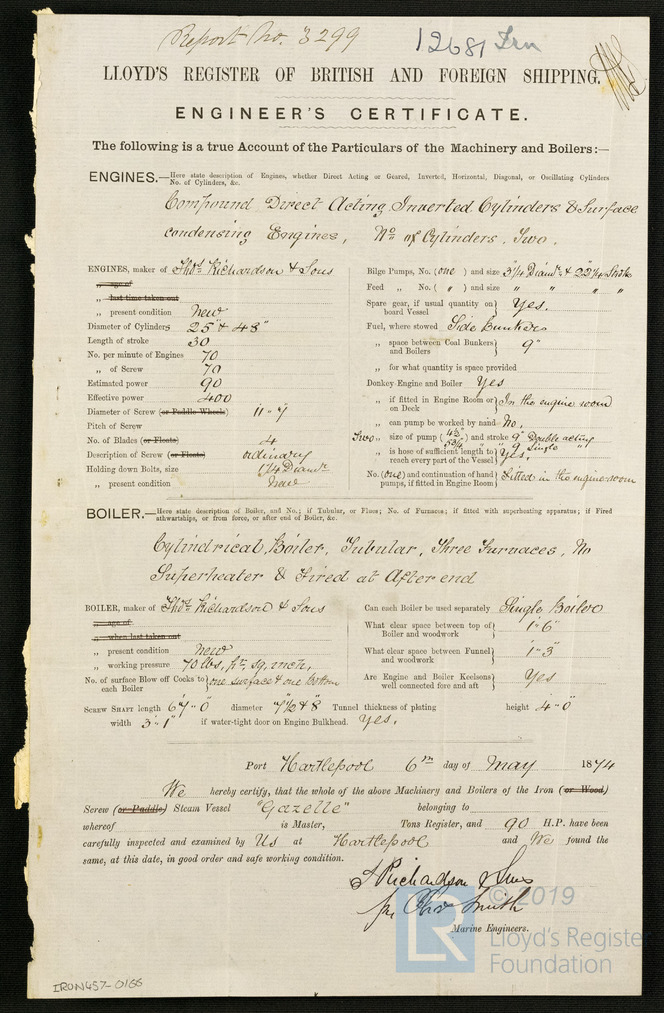 Report No. 3299
12681 Irn
LLOYD'S REGISTER OF BRITISH AND FOREIGN SHIPPING.
ENGINEER'S CERTIFICATE.
The following is a true Account of the Particulars of the Machinery and Boilers:—
ENGINES.—Here state description of Engines, whether Direct Acting or Geared, Inverted, Horizontal, Diagonal, or Oscillating Cylinders
No. of Cylinders, &c.
Compound Direct Acting Inverted Cylinders & Surface
condensing Engines, No of Cylinders. Two.
ENGINES, maker of Thos Richardson & Sons
„ age of
„ last time taken out
„ present condition New
Diameter of Cylinders 25" & 48"
Length of stroke 30
No. per minute of Engines 70
„ of Screw 70
Estimated power 90
Effective power 400
Diameter of Screw (or Paddle Wheels) 11"-7
Pitch of Screw
No. of Blades (or Floats) 4
Description of Screw (or Floats) ordinary
Holding down Bolts, size 1 1/4 Diamr
„ present condition New
Bilge Pumps, No. (one) and size 3 1/4 Diamr & 22 1/4 Stroke
Feed „ No. ( „ ) and size „ „ „ „
Spare gear, if usual quantity on board Vessel } Yes.
Fuel, where stowed Side Bunkers
„ space between Coal Bunkers and Boilers } 9"
„ for what quantity is space provided
Donkey-Engine and Boiler Yes
„ if fitted in Engine Room or on Deck } In the engine room
„ can pump be worked by hand No.
Two „ size of pump ( ) and stroke 9" Double acting
9 Single "
„ is hose of sufficient length to reach every part of the Vessel } Yes.
No. (one) and continuation of hand pumps, if fitted in Engine Room } Fitted in the engine room
BOILER.—Here state description of Boiler, and No.; if Tubular, or Flues; No. of Furnaces; if fitted with superheating apparatus; if Fired
athwartships, or from force, or after end of Boiler, &c.
Cylindrical Boiler, Tubular, Three Furnaces, No
Superheater & Fired at After end
BOILER, maker of Thos Richardson & Sons
„ age of
„ when last taken out
„ present condition New
„ working pressure 70 lbs, pr sq, inch,
No. of surface Blow off Cocks to each Boiler } one surface & one bottom
Can each Boiler be used separately Single Boiler
What clear space between top of Boiler and woodwork } 1"-6"
What clear space between Funnel and woodwork } 1"-3"
Are Engine and Boiler Keelsons well connected fore and aft } Yes
SCREW SHAFT length 67"-0" diameter 7 1/2 & 8 Tunnel thickness of plating height 4"-0"
width 3"-1" if water-tight door on Engine Bulkhead. Yes.
Port Hartlepool 6th day of May 1874
We hereby certify, that the whole of the above Machinery and Boilers of the Iron (or Wood)
Screw (or Paddle) Steam Vessel "Gazelle" belonging to
whereof is Master, Tons Register, and 90 H.P. have been
carefully inspected and examined by Us at Hartlepool and We found the
same, at this date, in good order and safe working condition.
T Richardson & Sons
Smith
Marine Engineers.
© 2019
LR
Lloyd's Register
Foundation
IRON457-0166